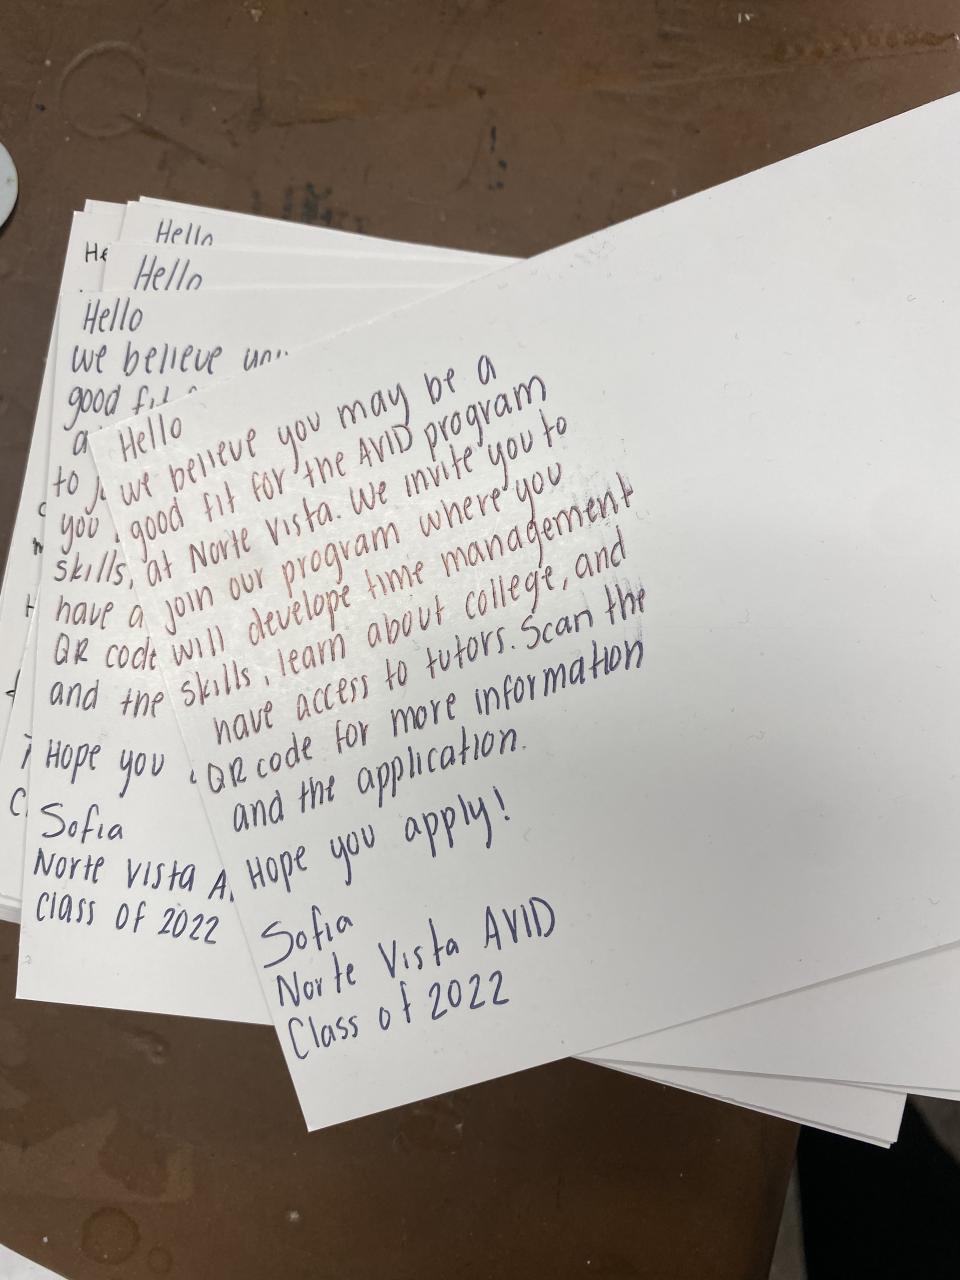 Hello
Hello
Hello
we believe
good fit
to
you
skills,
have a
QR code
and the
Hope you
Sofia
Norte Vista A
Class of 2022
Hello
we believe you may be a
good fit for the AVID program
at Norte Vista. We invite you to
join our program where you
will develope time management
skills, learn about college, and
have access to tutors. Scan the
QR code for more information
and the application.
Hope you apply!
Sofia
Norte Vista AVID
Class of 2022